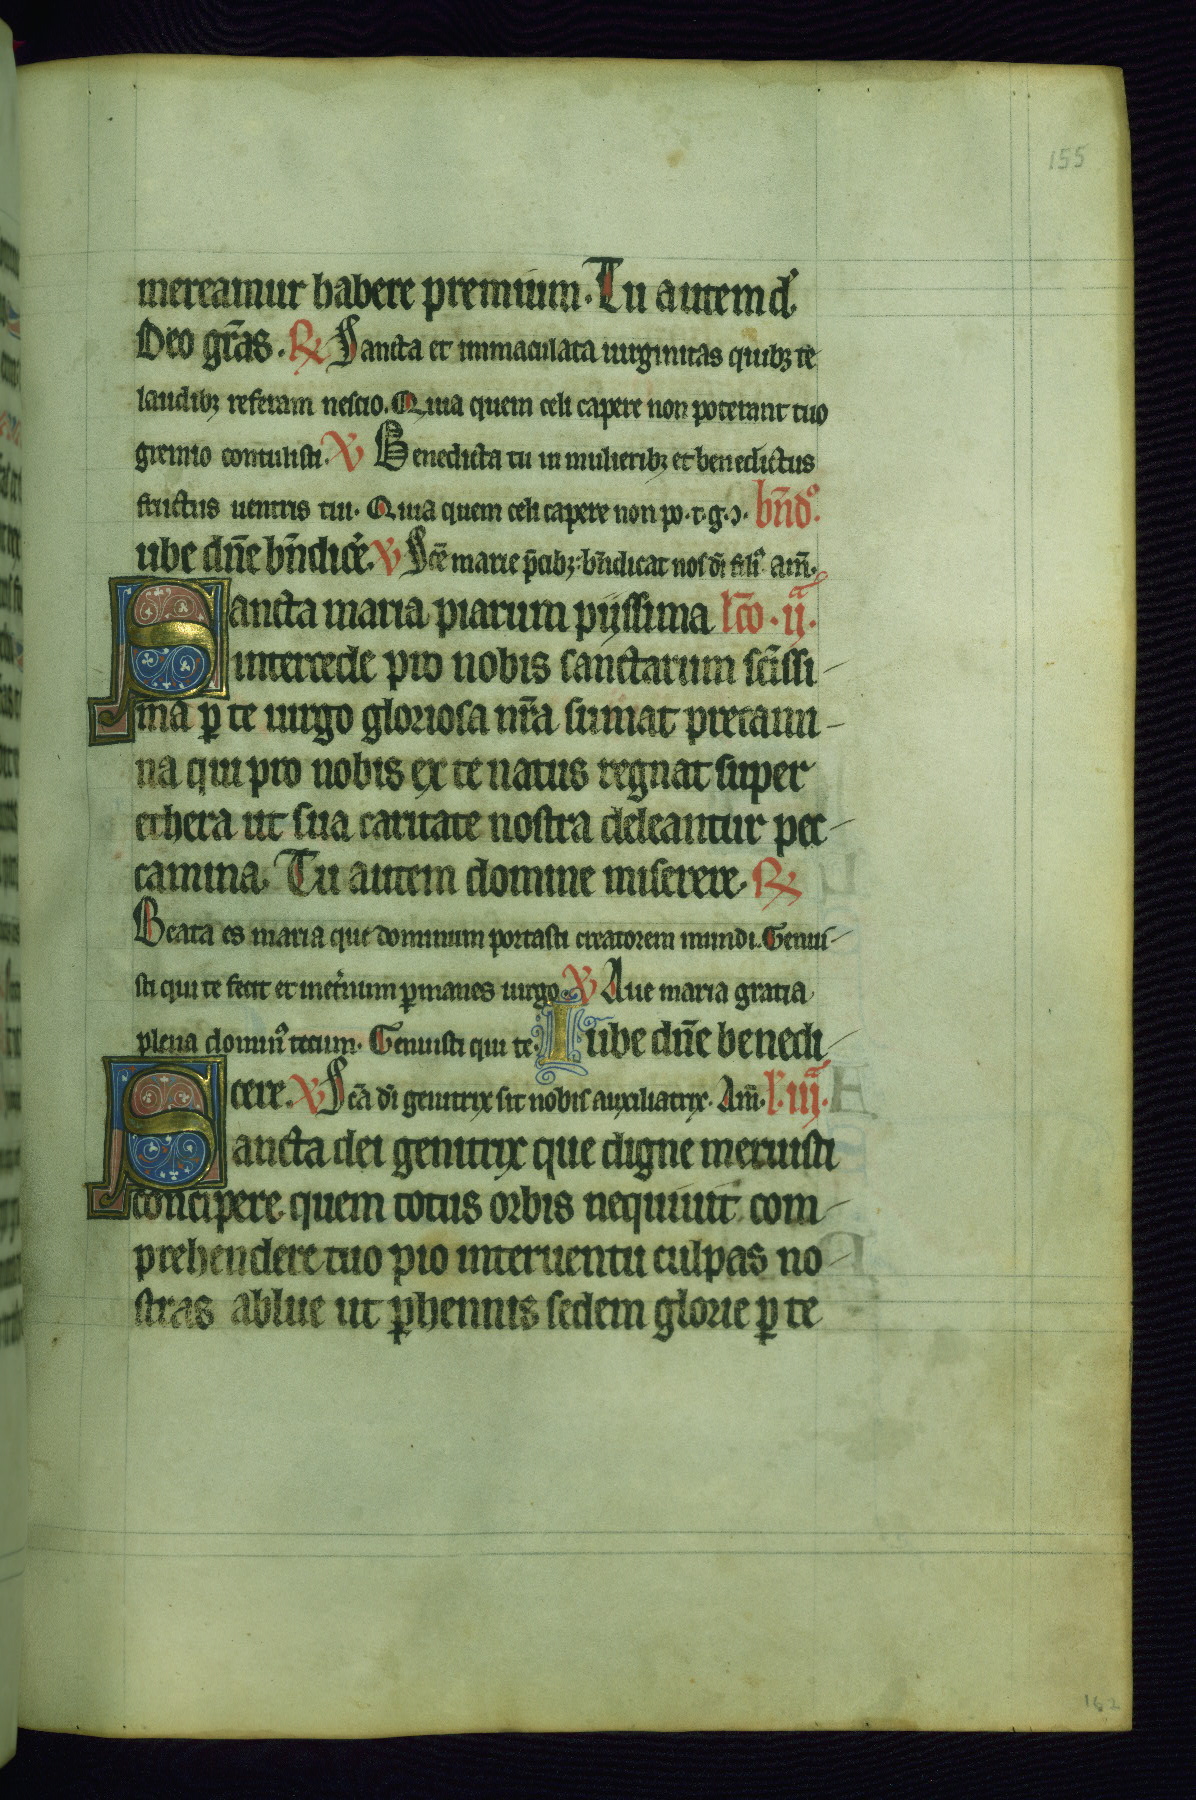 155
mereamur habere premium. Tu autem d̾.
Deo gr̃as. ℟ Sancta et immaculata uirginitas quibꝫ te
laudibꝫ referam nescio. Quia quem celi capere non poterant tuo
gremio contulisti. ℣ Benedicta tu in mulieribꝫ et benedictus
fructus uentris tui. Quia quem celi capere non po. t. g. ꝯ. bñdo.
ube dñe bñdicẽ. ℣ Scẽ marie p̃cibꝫ bñdicat nos dĩ fili9 am̃.
Sancta maria piarum piissima lc̃o. ij.
intercede pro nobis sanctarum sc̃issi-
ma ꝑ te uirgo gloriosa nr̃a sumat precami-
na qui pro nobis ex te natus regnat super
ethera ut sua caritate nostra deleantur pec-
camina. Tu autem domine miserere. ℟
Beata es maria que dominum portasti creatorem mundi. Genui-
sti qui te fecit et inet̾num ꝑmanes uirgo. ℣ Aue maria gratia
plena domin9 tecum. Genuisti qui te. Iube dñe benedi-
cere. ℣ Scã dĩ genitrix sit nobis auxiliatrix. Am̃. l. iij.
Sancta dei genitrix que digne meruisti
concipere quem totus orbis nequiuit com-
prehendere tuo pio interuentu culpas no-
stras ablue ut ꝑhennis sedem glorie ꝑ te
162